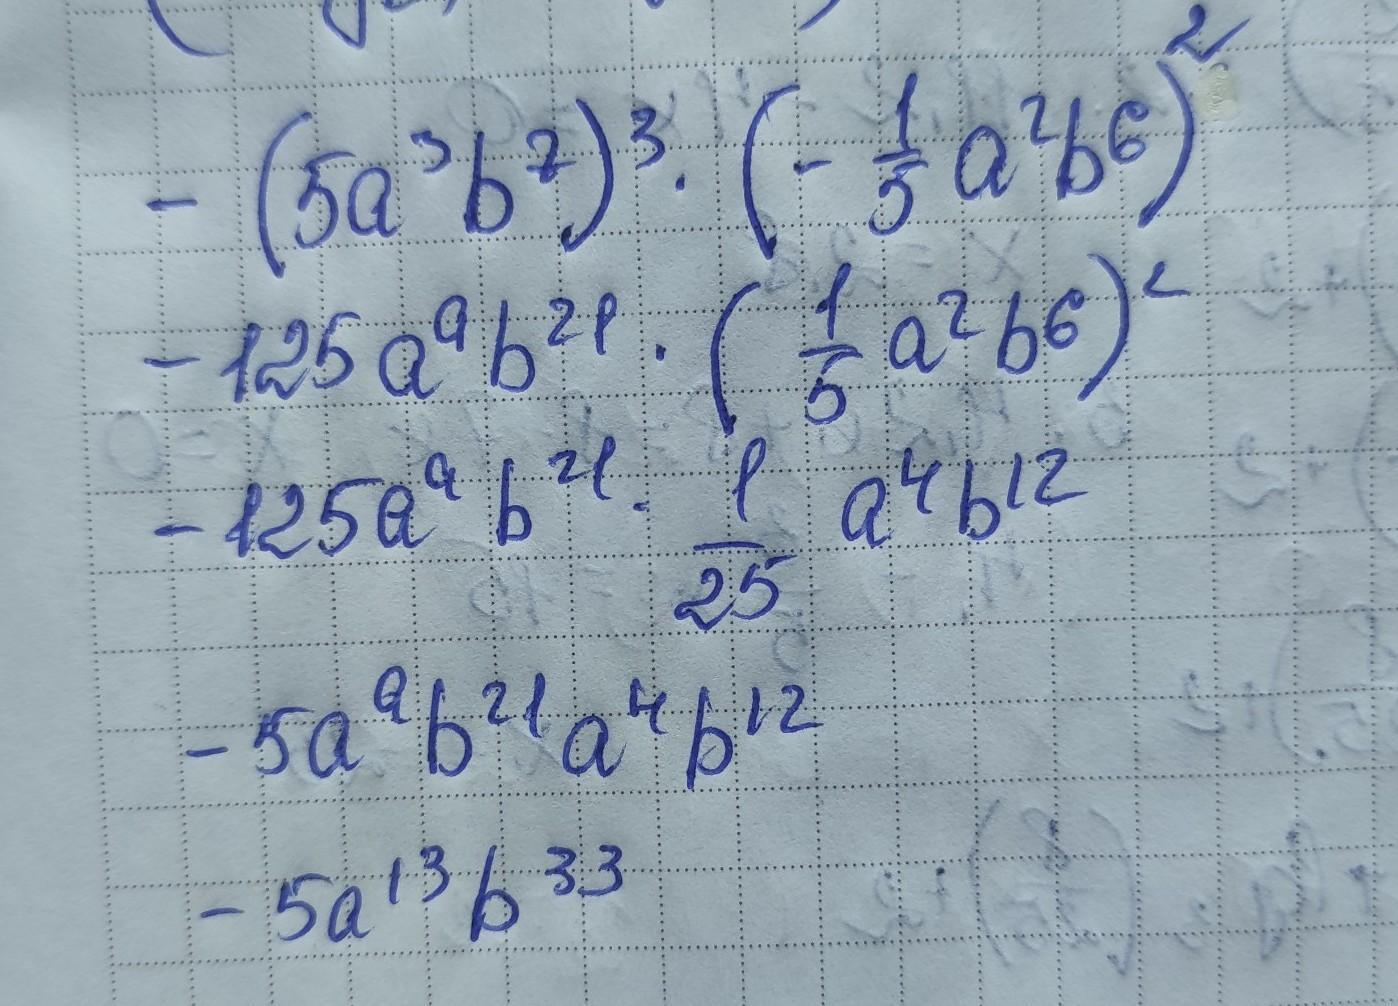 - (5a³b⁷)³ · (- 1/5 a²b⁶)²
- 125a⁹b²¹ · (1/5 a²b⁶)²
- 125a⁹b²¹ · 1/25 a⁴b¹²
- 5a⁹b²¹a⁴b¹²
- 5a¹³b³³